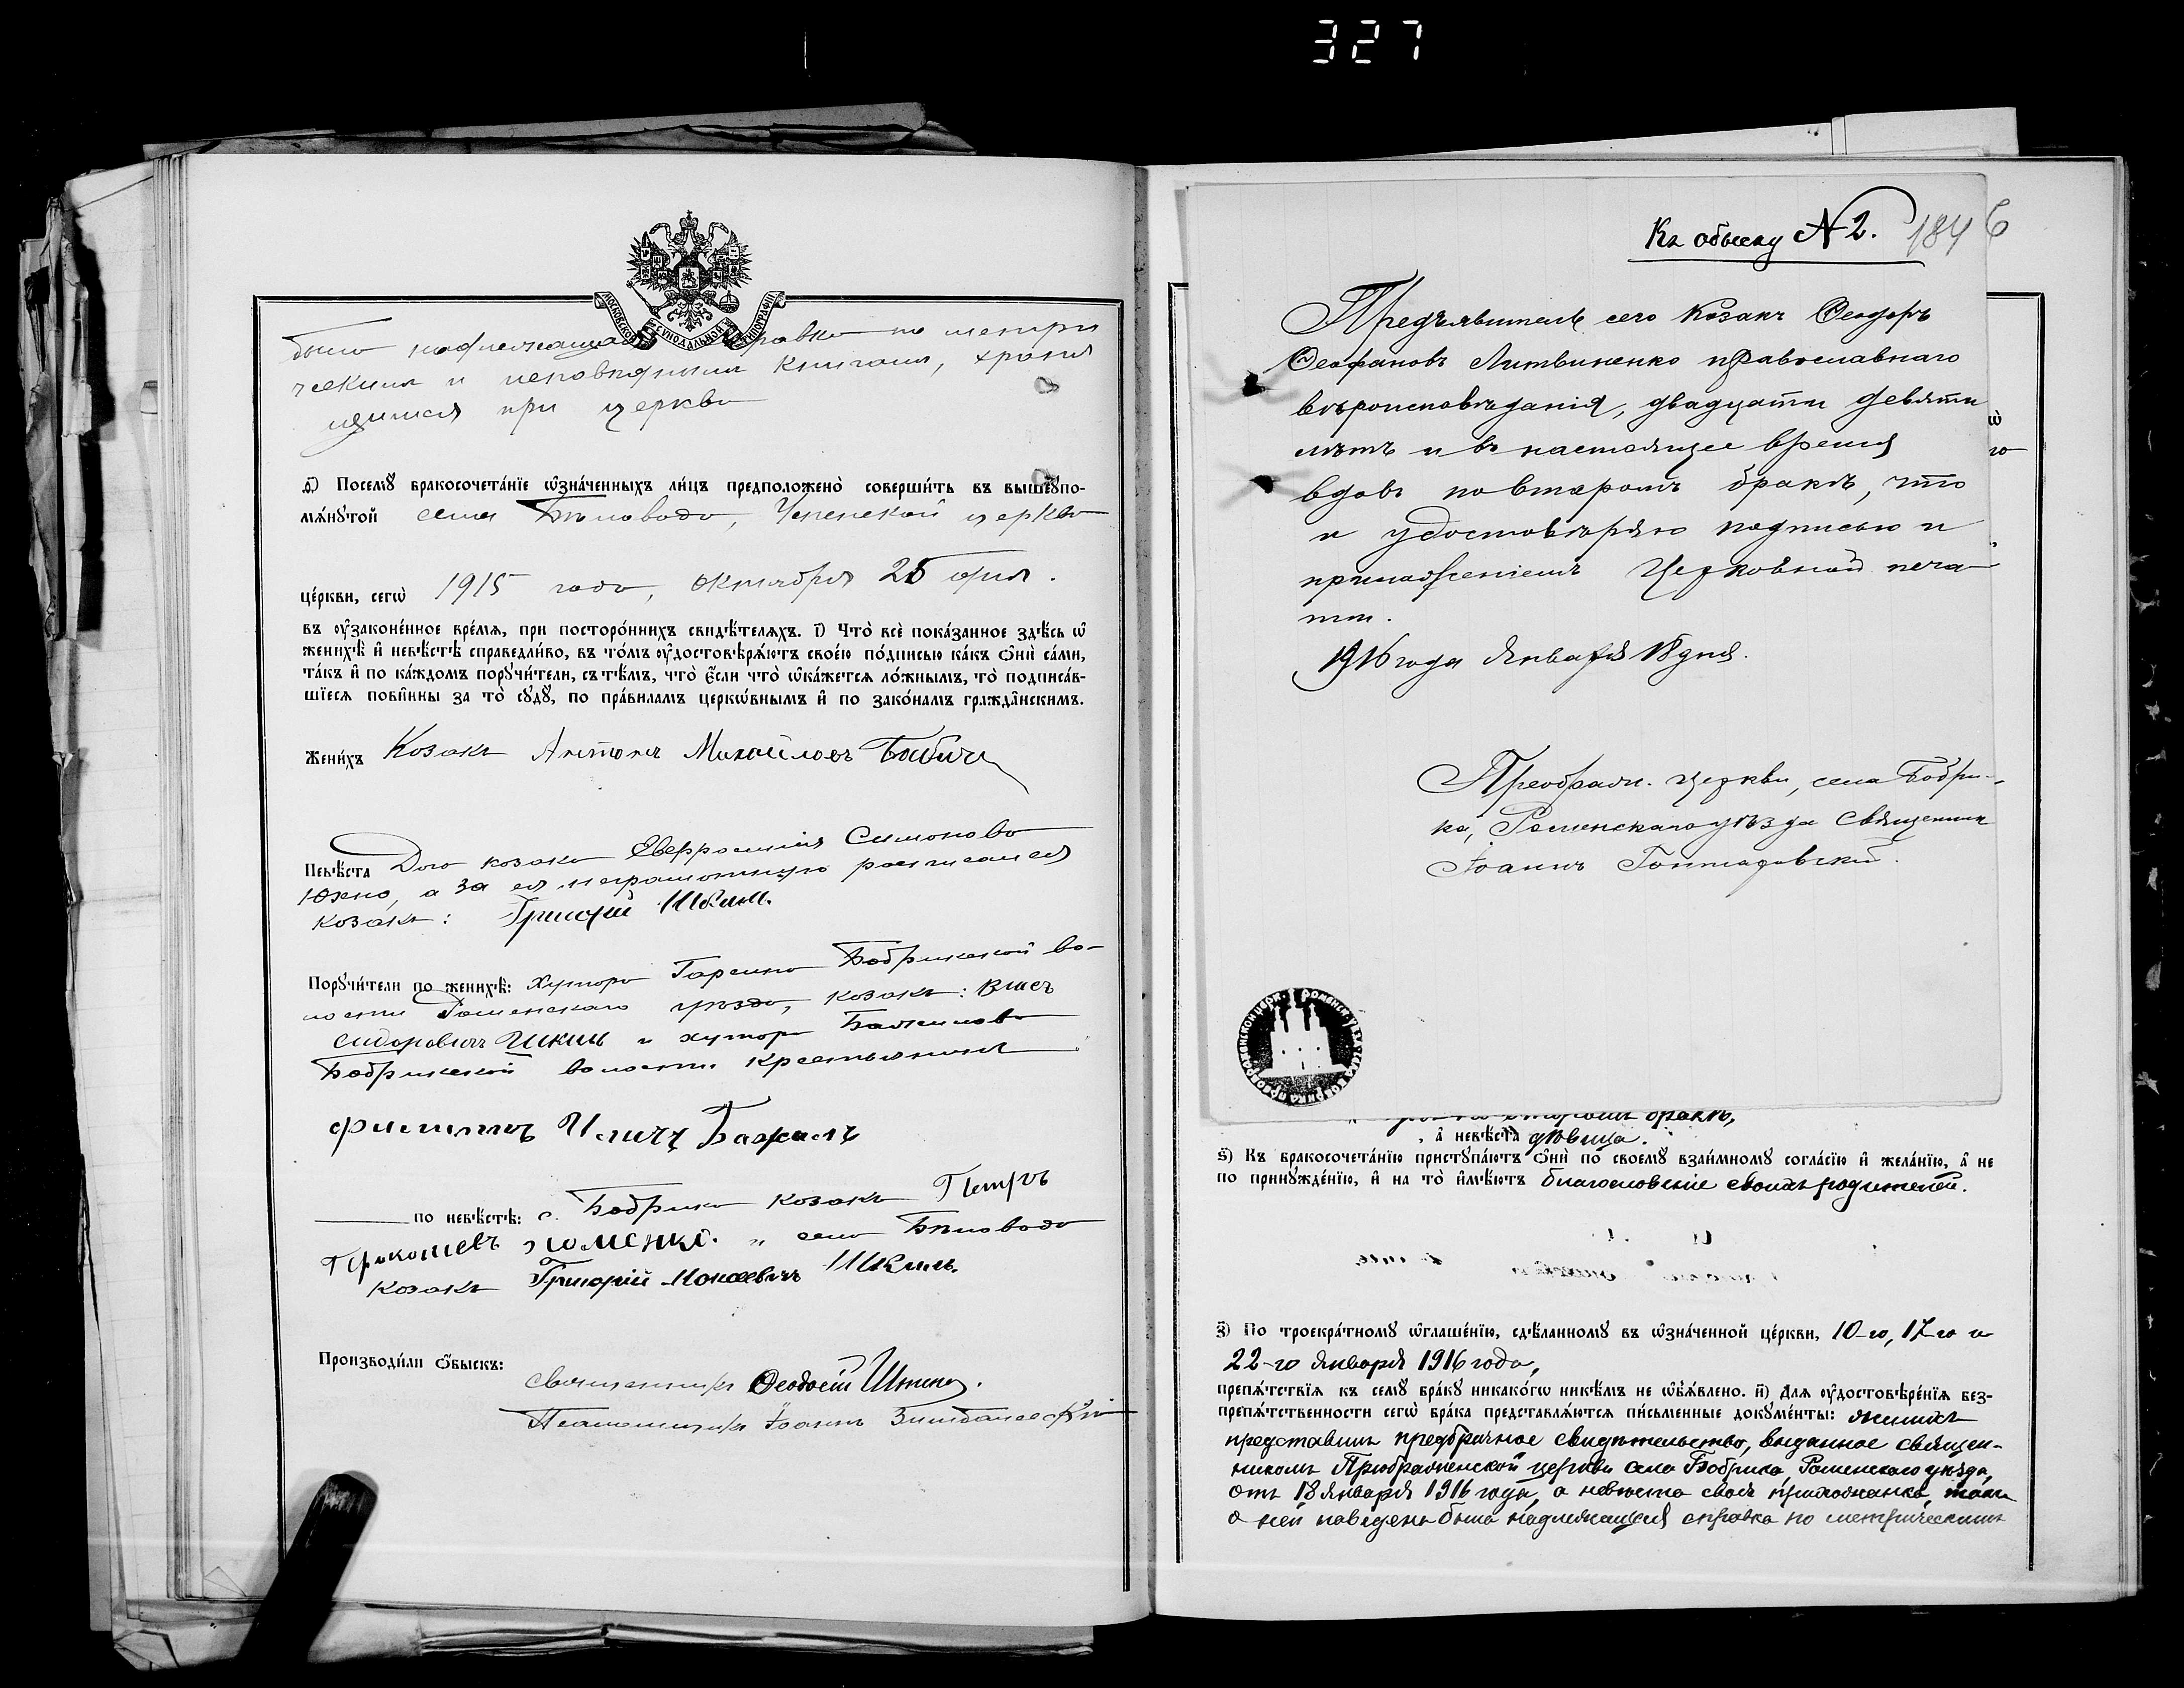 327
МОСКОВСКОЙ СУНОДАЛЬНОЙ ТИПОГРАФІИ
было надлежащая справка по метри
ческимъ и исповѣднымъ книгамъ, храня
щимся при церкви
д҃) Посемꙋ бракосочетанїе ѡзначенныхъ лицъ предположено совершить въ вышеꙋпо-
мянꙋтой села Бѣловода, Успенской церкви
церкви, сегѡ 1915 года, октября 25 дня.
въ ᲂузаконенное время, при постороннихъ свидѣтеляхъ. і҃) Что все показанное здѣсь ѡ
женихѣ и невѣстѣ справедливо, въ томъ ᲂудостовѣряютъ своею подписью какъ ѡни сами,
такъ и по каждомъ порꙋчители, съ тѣмъ, что если что ѡкажется ложнымъ, то подписав-
шїеся повинны за то сꙋдꙋ, по правиламъ церкѡвнымъ и по законамъ гражданскимъ.
Женихъ Козакъ Антонъ Михайловъ Бабичъ
Невѣста Дочь козака Евфросинія Симонова
Юхно, а за ея неграмотную росписался
козакъ: Григорій Шкиль.
Порꙋчители по женихѣ: Хутора Гарсина Бобрикской во-
лости Роменскаго уѣзда, козакъ: Влась
Сидоровичъ Шкиль и хутора
Бобрикской волости крестьянинъ
Филиппъ Бажалъ
по невѣстѣ: с. Бобрика козакъ Петръ
Прокопіевъ Хоменко. и села Бѣловода
козакъ Григорій Шкиль.
Производили ѡбыскъ:
Священникъ Ѳеодосій
Псаломщикъ Іоаннъ
Къ обыску № 2. 184 6
Предъявитель сего козакъ Ѳеодоръ
Ѳеофановъ Литвиненко православнаго
вѣроисповѣданія, двадцати девяти
лѣтъ и въ настоящее время
вдовъ по второмъ бракѣ, что
и удостовѣряю подписью и
приложеніемъ Церковной печа
ти.
1916 года Января 18 дня.
Преображ. церкви, села Бобри-
ка, Роменскаго уѣзда Священникъ
Іоаннъ
второмъ бракѣ,
, а невѣста дѣвица.
ѕ҃) Къ бракосочетанїю пристꙋпаютъ ѡни по своемꙋ взаимномꙋ согласїю и желанїю, а не
по принꙋжденїю, и на то имѣютъ благословеніе своихъ родителей.
з҃) По троекратномꙋ ѡглашенїю, сдѣланномꙋ въ ѡзначенной церкви, 10-го, 17-го и
22-го января 1916 года,
препятствїя къ семꙋ бракꙋ никакогѡ никѣмъ не ѡбъявлено. и҃) Для ᲂудостовѣренїя без-
препятственности сегѡ брака представляются письменные докꙋменты: женихъ
представилъ предбрачное свидѣтельство, выданное священ-
никомъ Преображенской церкви села Бобрика, Роменскаго уѣзда,
отъ 18 января 1916 года, а невѣста своя прихожанка,
о ней наведена была надлежащая справка по метрическимъ